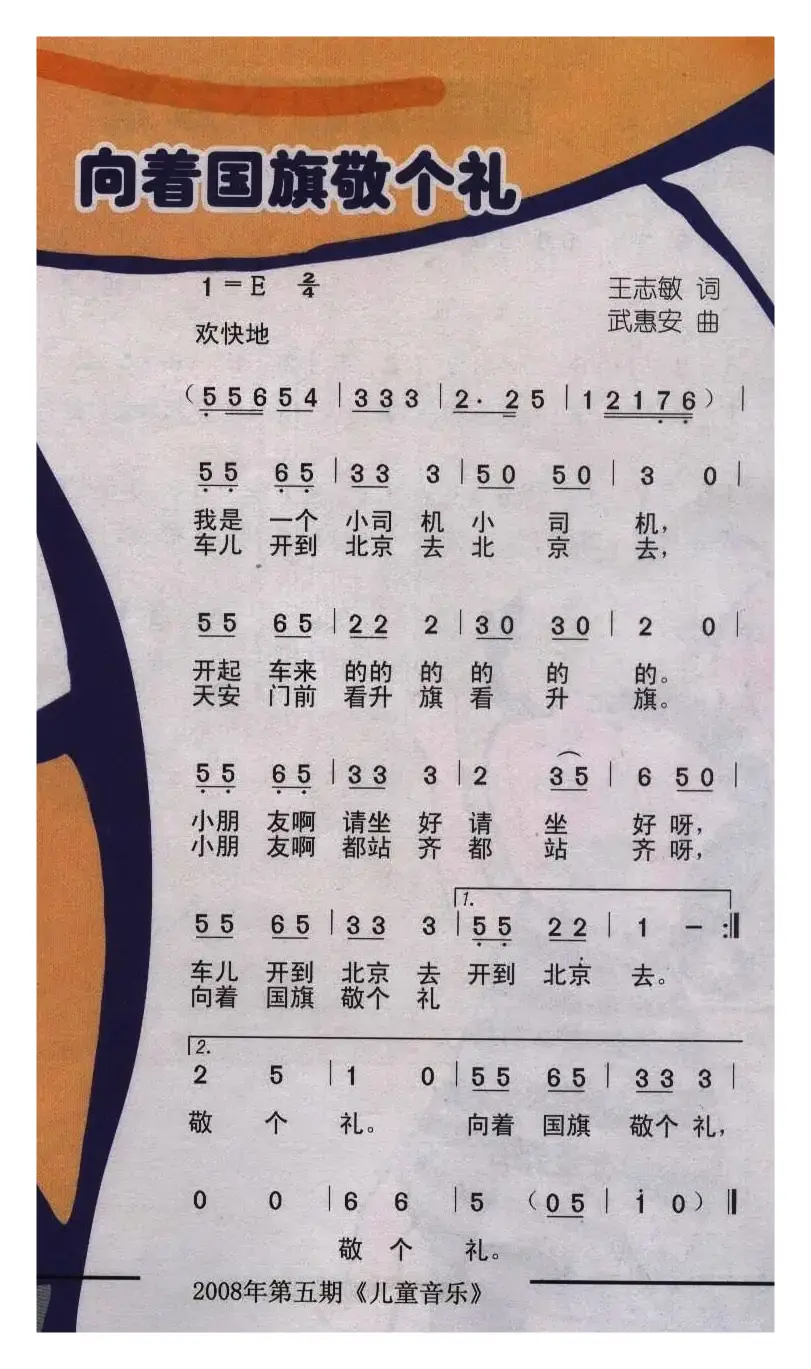 向着国旗敬个礼
1 = E 2/4
王志敏 词
武惠安 曲
欢快地
( 5 5 6 5 4 | 3 3 3 | 2 · 2 5 | 1 2 1 7 6 ) |
5 5 6 5 | 3 3 3 | 5 0 5 0 | 3 0 |
我是 一个 小司 机 小 司 机,
车儿 开到 北京 去 北 京 去,
5 5 6 5 | 2 2 2 | 3 0 3 0 | 2 0 |
开起 车来 的的 的 的 的 的。
天安 门前 看升 旗 看 升 旗。
5 5 6 5 | 3 3 3 | 2 3 5 | 6 5 0 |
小朋 友啊 请坐 好 请 坐 好 呀,
小朋 友啊 都站 齐 都 站 齐 呀,
1.
5 5 6 5 | 3 3 3 | 5 5 2 2 | 1 – :‖
车儿 开到 北京 去 开到 北京 去。
向着 国旗 敬个 礼
2.
2 5 | 1 0 | 5 5 6 5 | 3 3 3 |
敬 个 礼。 向着 国旗 敬个 礼,
0 0 | 6 6 | 5 ( 0 5 | i 0 ) ‖
敬 个 礼。
2008年第五期《儿童音乐》